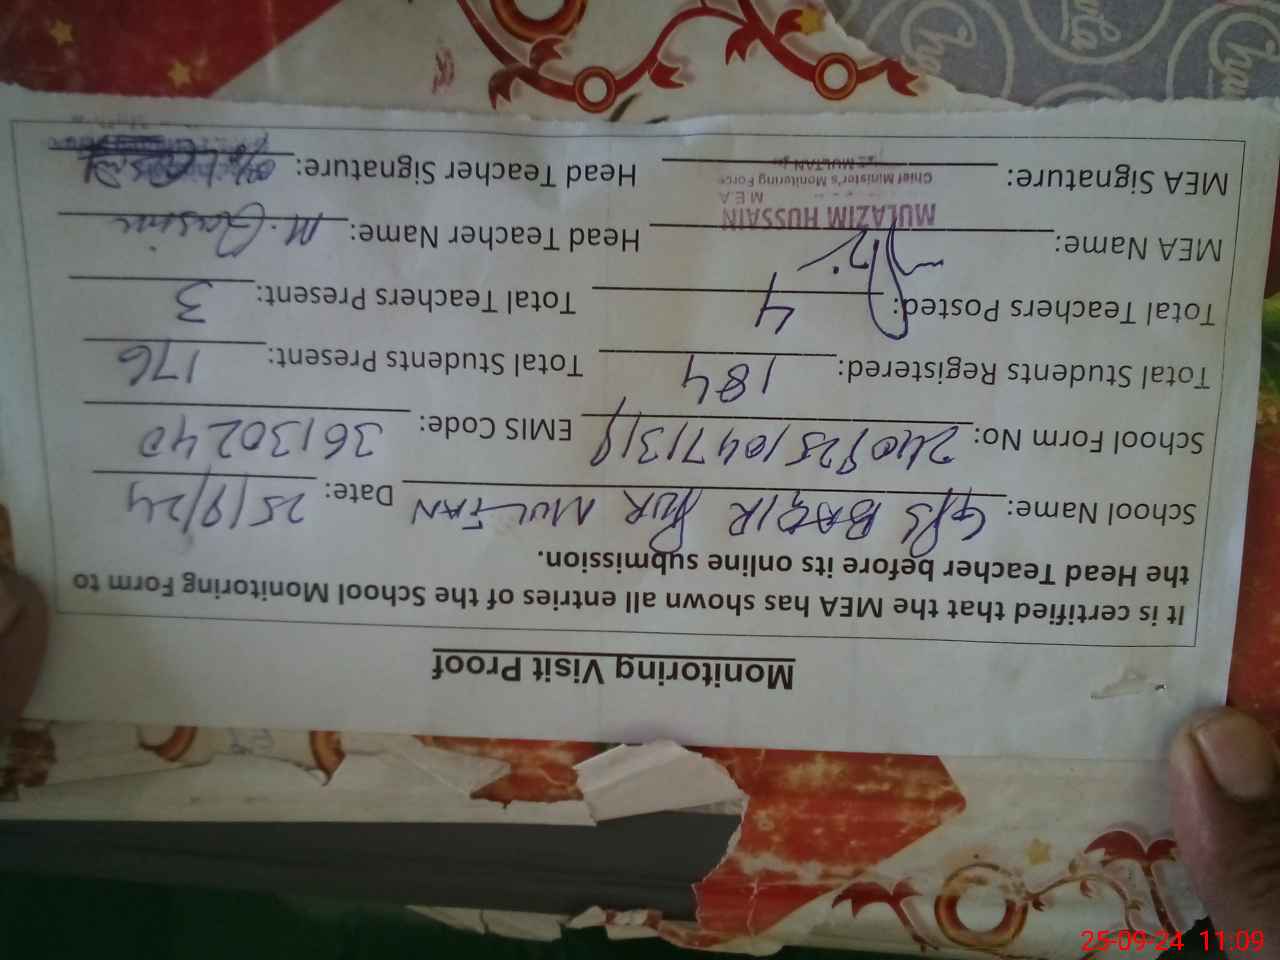 Monitoring Visit Proof
It is certified that the MEA has shown all entries of the School Monitoring Form to
the Head Teacher before its online submission.
School Name: G/PS BAQIR PUR MULTAN Date: 25/9/24
School Form No: EMIS Code: 36130240
Total Students Registered: 184 Total Students Present: 176
Total Teachers Posted: 4 Total Teachers Present: 3
MEA Name: Head Teacher Name: M. Qasim
MULAZIM HUSSAIN
MEA
Chief Minister's Monitoring Force
MULTAN
MEA Signature: Head Teacher Signature:
25-09-24 11:09